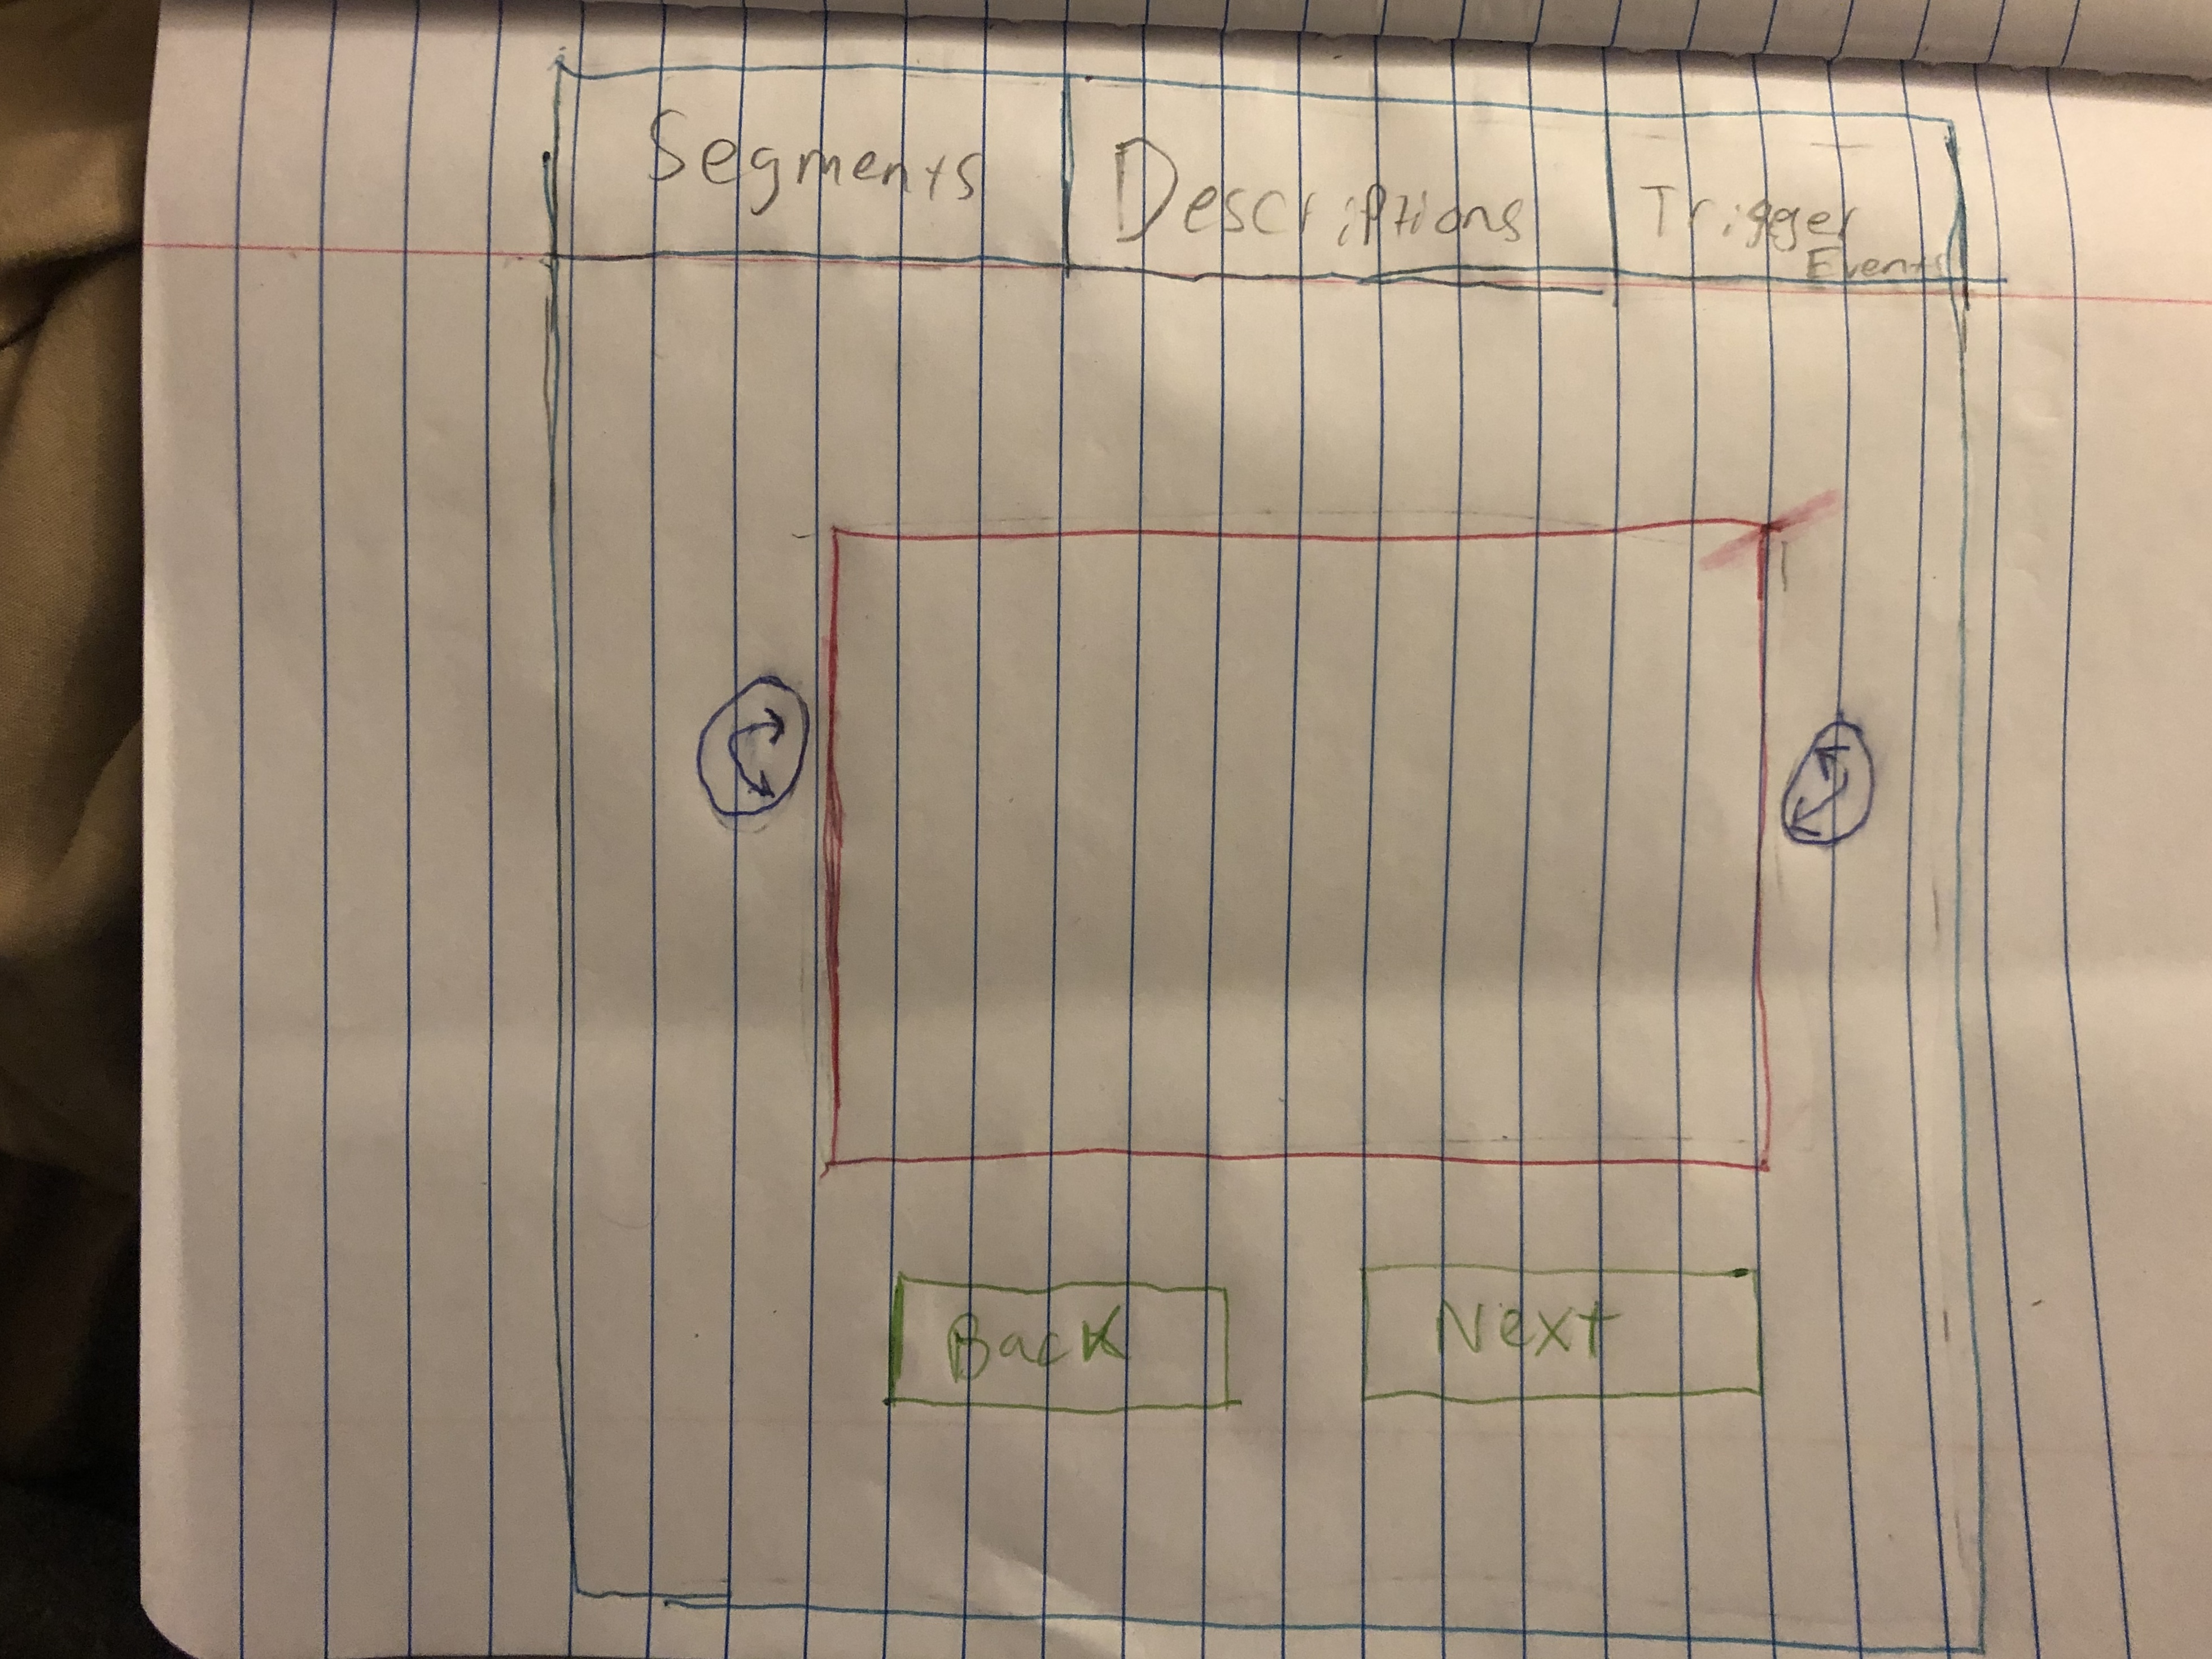 Segments
Descriptions
Trigger
Events
Back
Next